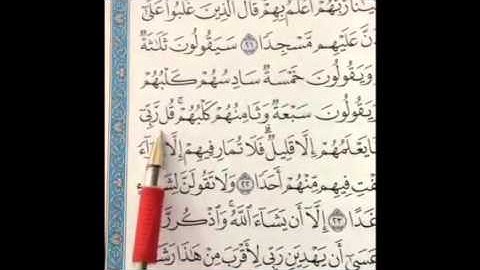 رَّبُّهُمْ أَعْلَمُ بِهِمْ قَالَ الَّذِينَ غَلَبُوا عَلَىٰ
نَّ عَلَيْهِم مَّسْجِدًا ٢١ سَيَقُولُونَ ثَلَاثَةٌ
وَيَقُولُونَ خَمْسَةٌ سَادِسُهُمْ كَلْبُهُمْ
وَيَقُولُونَ سَبْعَةٌ وَثَامِنُهُمْ كَلْبُهُمْ ۚ قُل رَّبِّي
مَّا يَعْلَمُهُمْ إِلَّا قَلِيلٌ ۗ فَلَا تُمَارِ فِيهِمْ إِلَّا
فِيهِم مِّنْهُمْ أَحَدًا ٢٢ وَلَا تَقُولَنَّ
غَدًا ٢٣ إِلَّا أَن يَشَاءَ اللَّهُ ۚ وَاذْكُر رَّ
عَسَىٰ أَن يَهْدِيَنِ رَبِّي لِأَقْرَبَ مِنْ هَٰذَا رَشَ